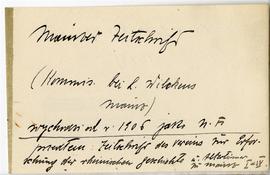 Mainzer Zeitschrift
(Kommis. bei L. Wilckens
Mainz)
wychodzi od r. 1906 jako N. F.
przedtem: Zeitschrift des Vereins zur Erfor-
schung der rheinischen Geschichte u. Altertümer
in Mainz I-IV.